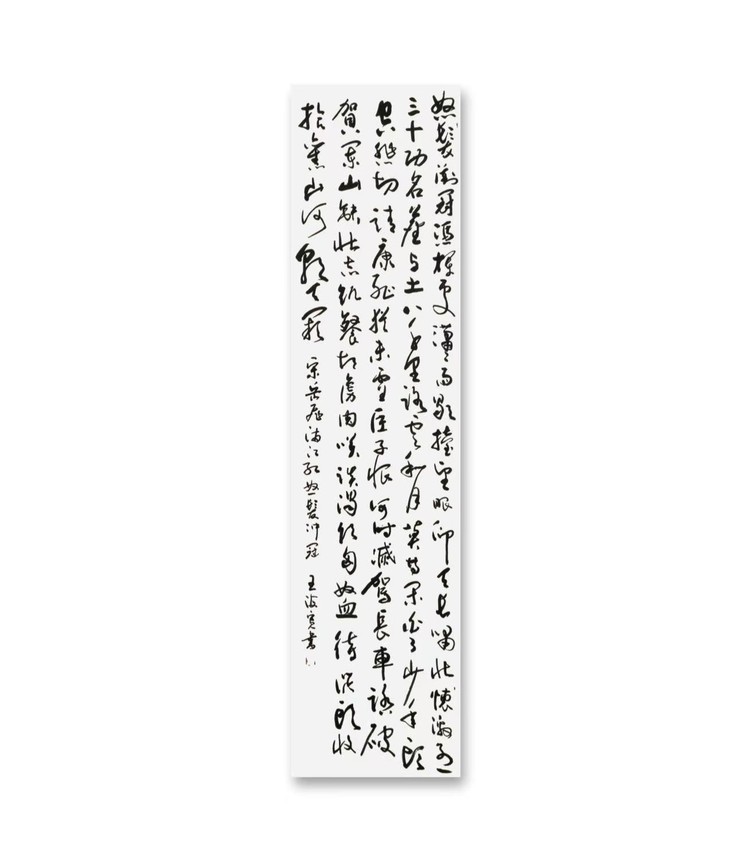 怒髮衝冠憑欄處瀟瀟雨歇擡望眼仰天長嘯壯懷激烈
三十功名塵与土八千里路雲和月莫等閑白了少年頭
空悲切靖康恥猶未雪臣子恨何時滅駕長車踏破
賀蘭山缺壯志飢餐胡虜肉笑談渴飲匈奴血待從頭收
拾舊山河朝天闕 宋岳飛滿江紅怒髮沖冠 王海寬書